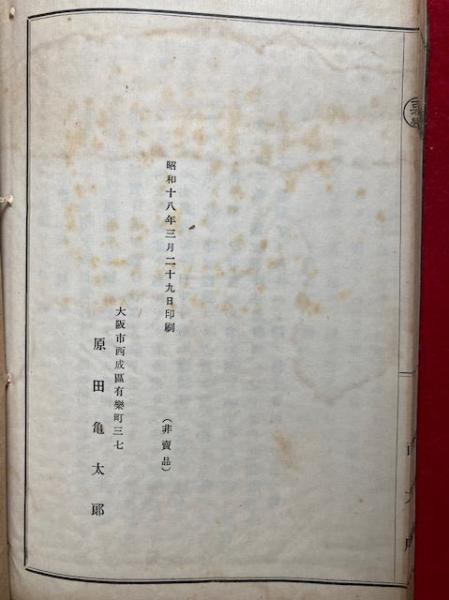 昭和十八年三月二十九日印刷 （非賣品）
大阪市西成區有樂町三七
原田亀太郎